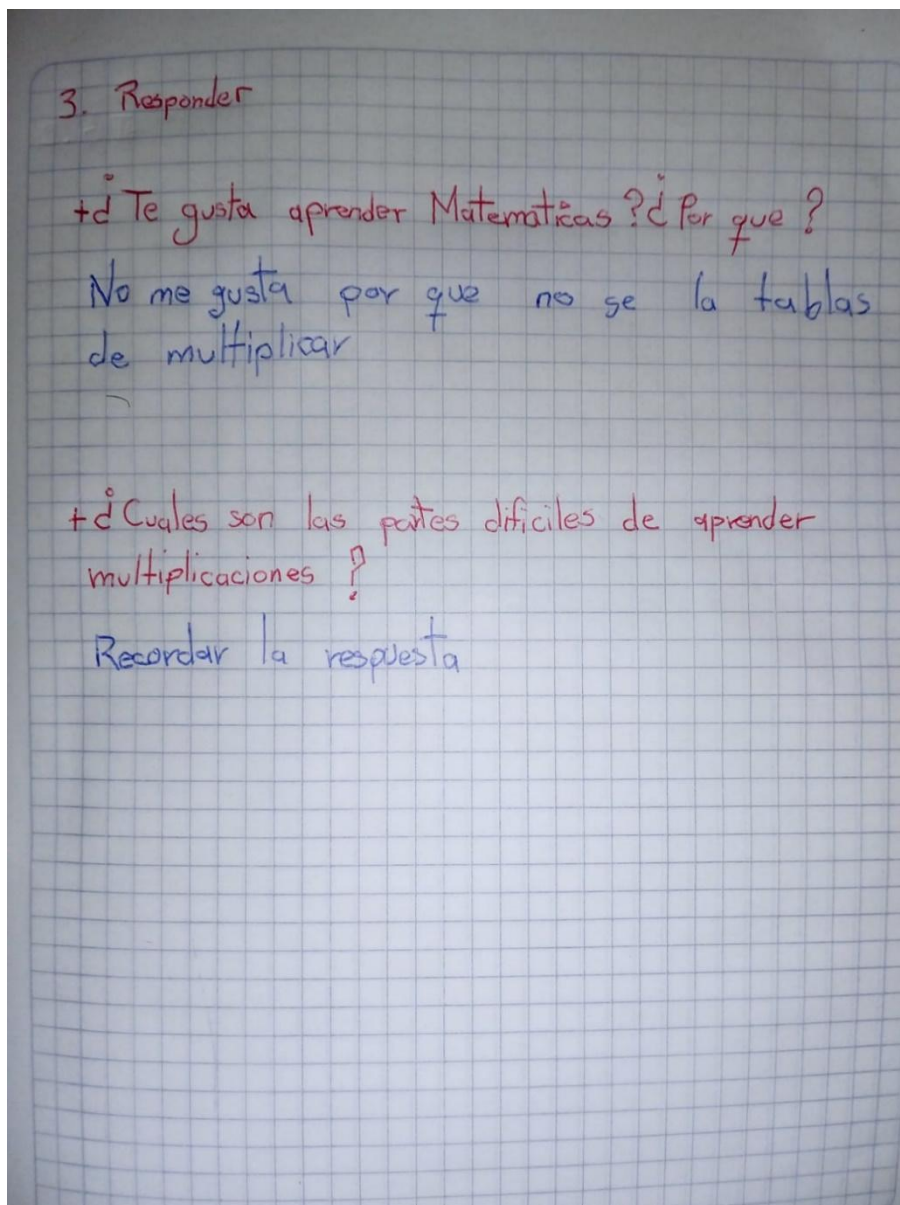 3. Responder
+¿Te gusta aprender Matematicas?¿Por que?
No me gusta por que no se la tablas
de multiplicar
+¿Cuales son las partes dificiles de aprender
multiplicaciones?
Recordar la respuesta